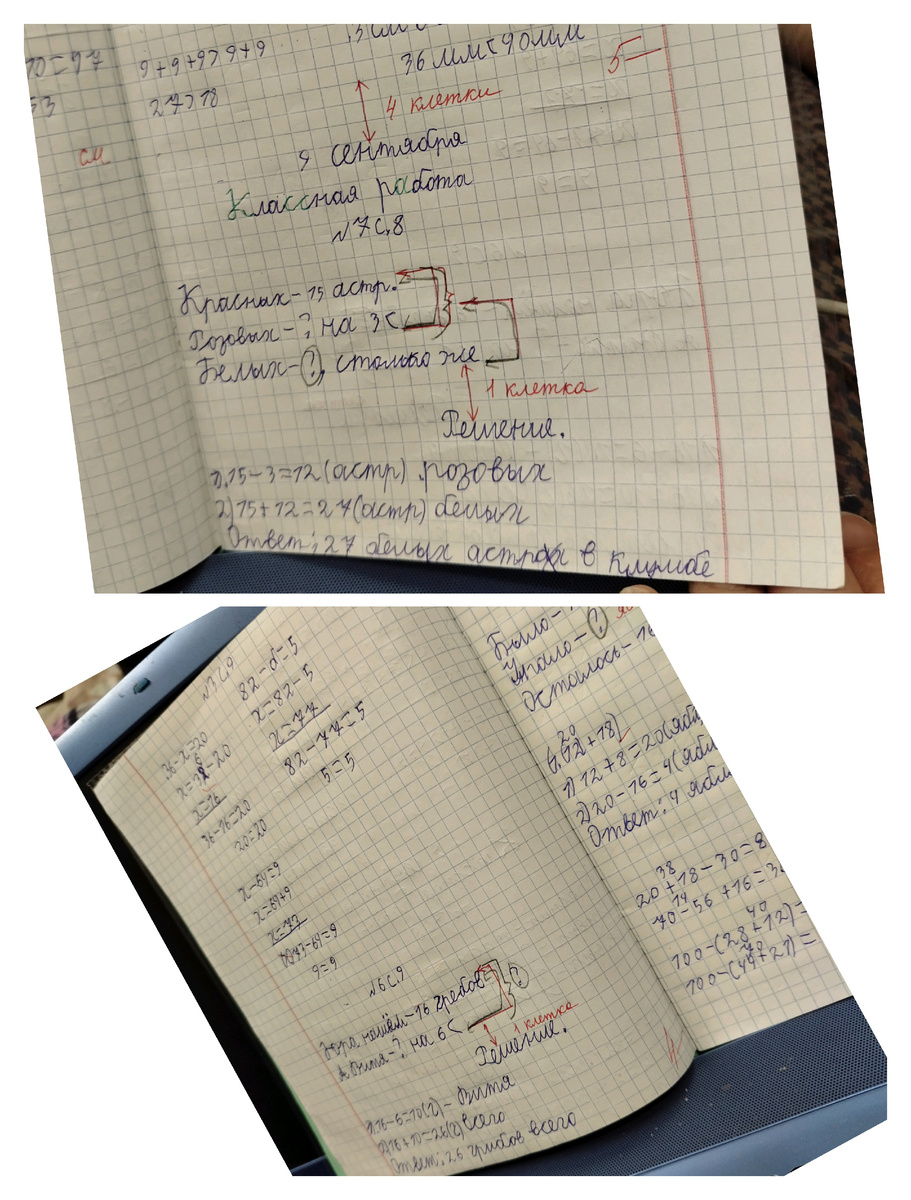 10=97
53
см
9+9+9>9+9
27>18
36мм<40мм
5-
4 клетки
9 сентября
Классная работа
№7с.8
Красных-15 астр.
Розовых-? на 3<
Белых-?, столько же
1 клетка
Решение.
1).15-3=12(астр).розовых
2)15+12=27(астр) белых
Ответ:27 белых астрах в
№3с.9
36-х=20
х=36-20
х=16
36-16=20
20=20
82-d=5
х=82-5
х=77
82-77=5
5=5
х-64=9
х=64+9
х=73
73-64=9
9=9
№6с.9
Юра нашёл-16 грибов
А Витя-? на 6<
?
1 клетка
Решение.
1)16-6=10(г)-Витя
2)16+10=26(г)всего
Ответ:26 грибов всего
Было-
Упало-?
Осталось-16
20
1)12+8=20(ябл
2)20-16=4(ябл
Ответ:4 ябл
38
20+18-30=8
14
70-56+16=30
40
100-(28+12)=
70
100-(49+21)=